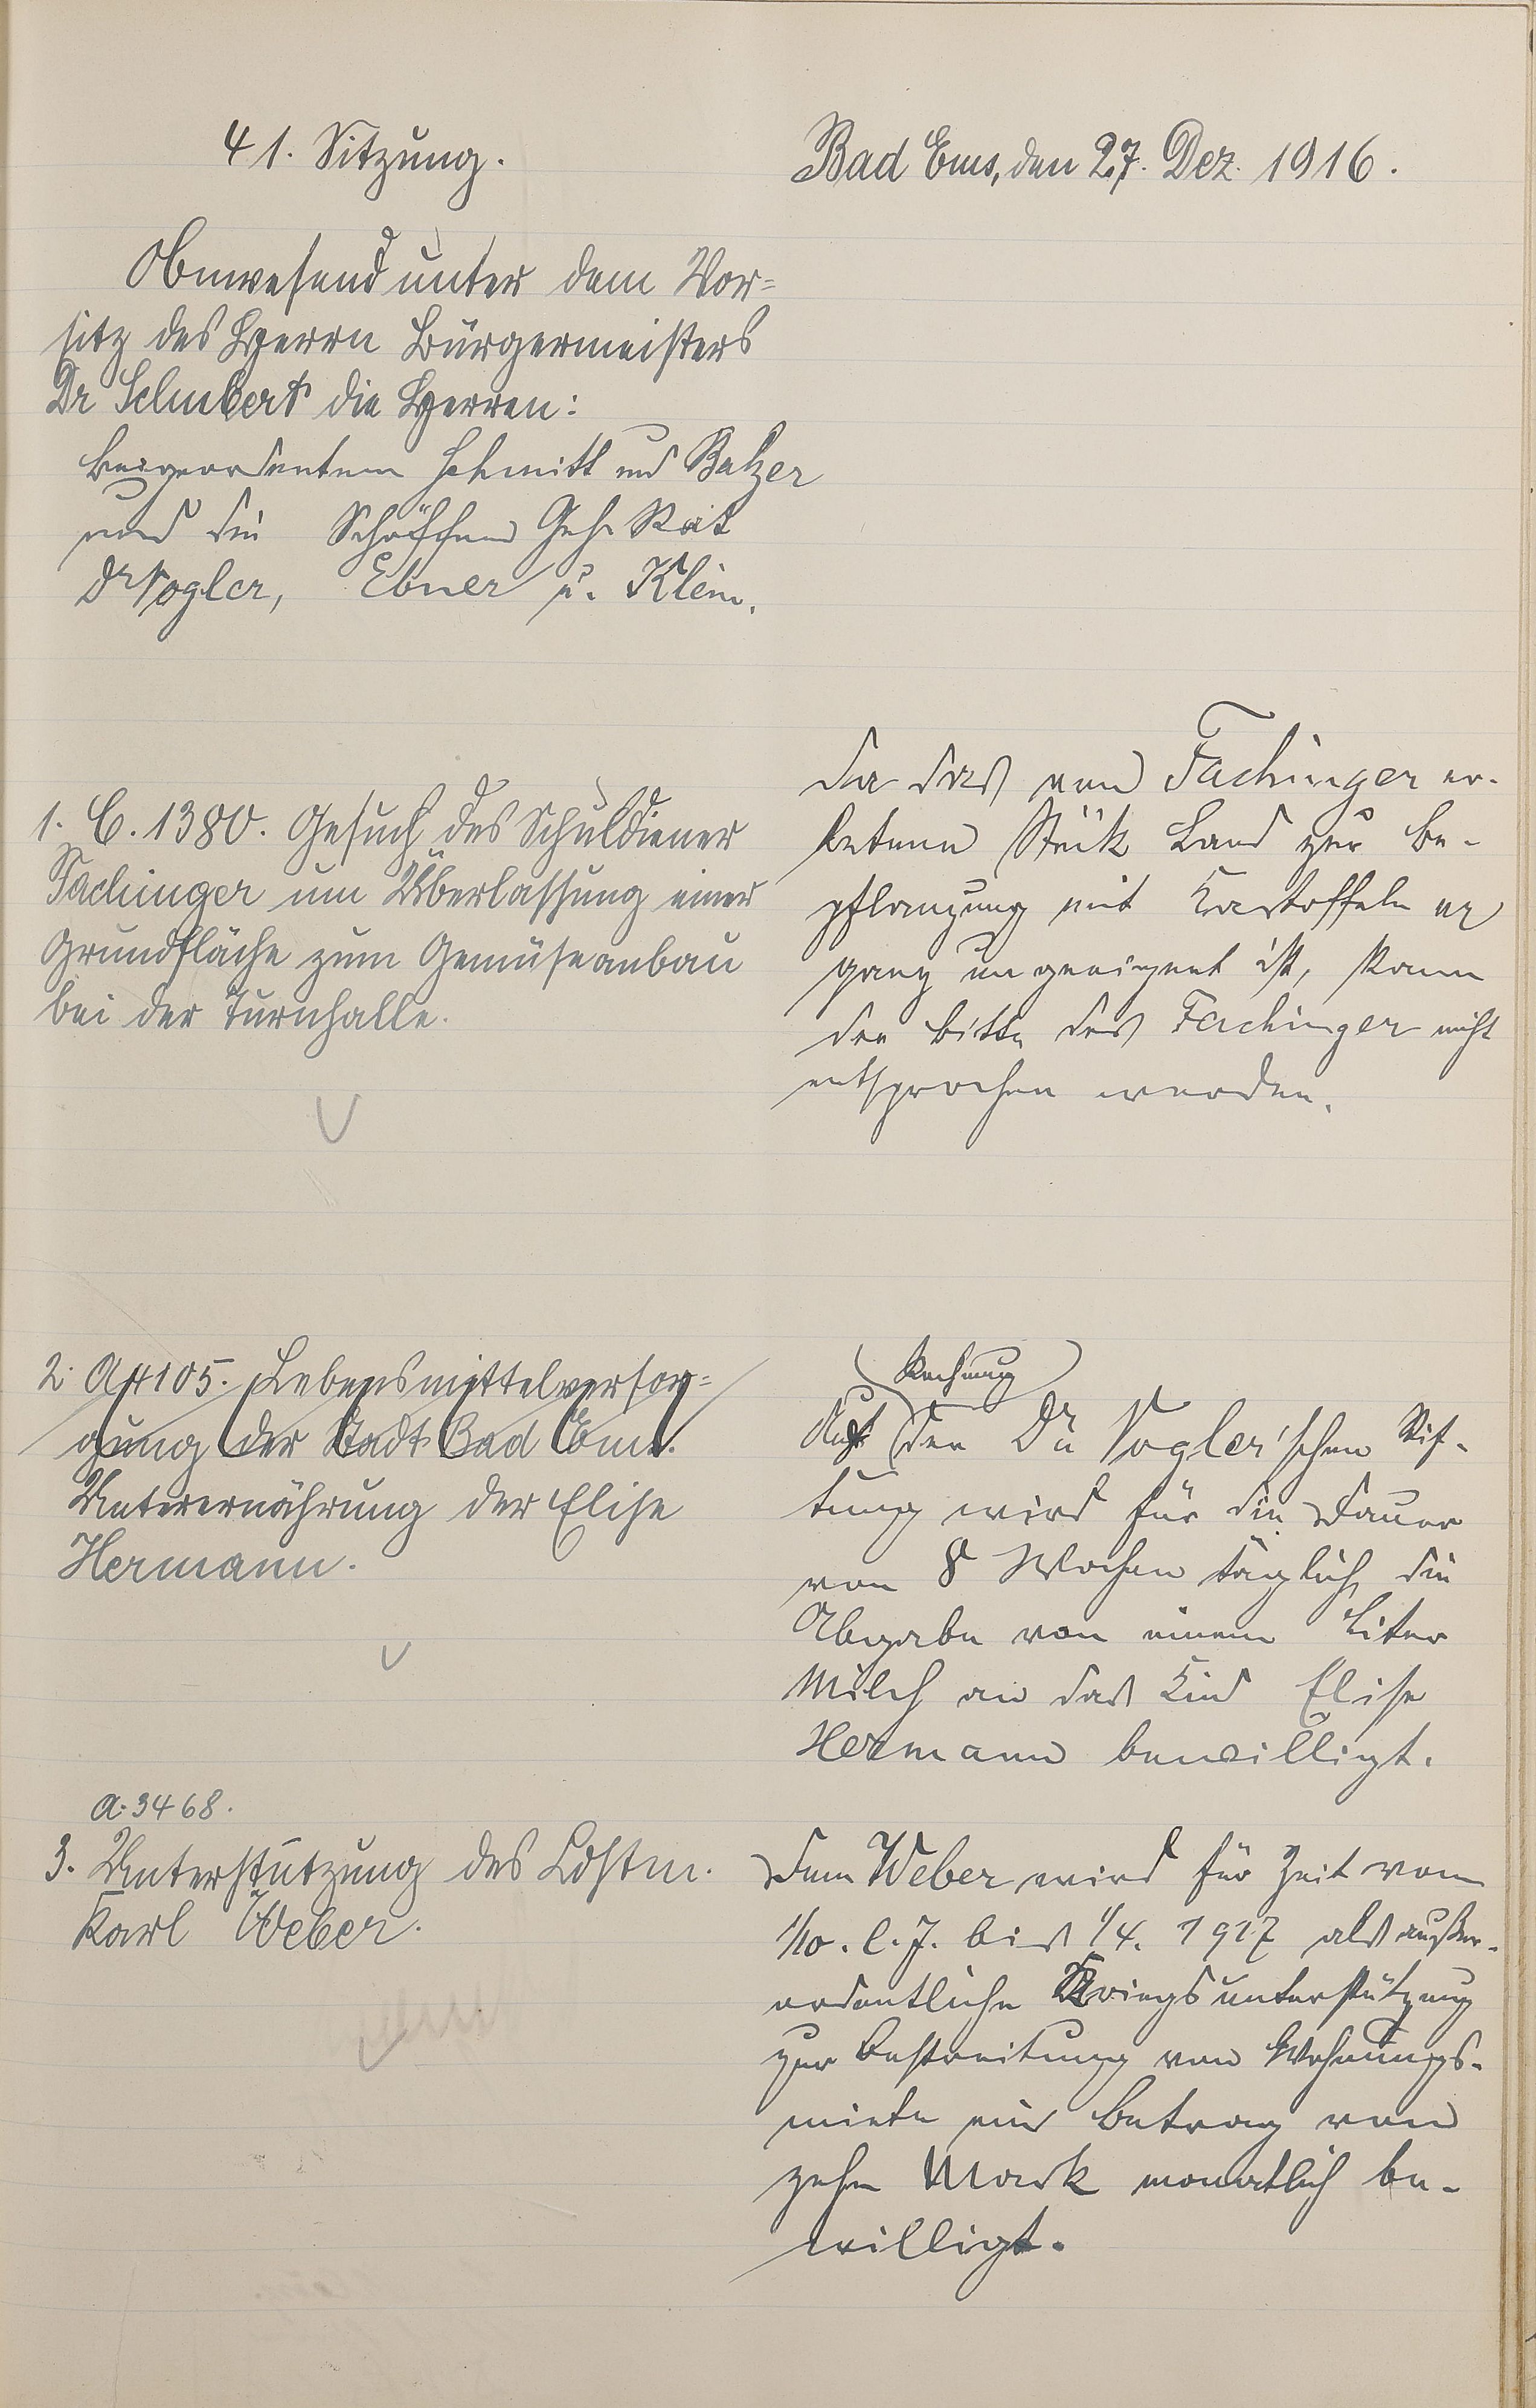 41. Sitzung.
Bad Ems, den 27. Dez. 1916.
Anwesend unter dem Vor=
sitz des Herrn Bürgermeisters
Dr Schubert die Herren:
Beigeordneten Schmitt und Balzer
und die Schöffen Geh. Rat
Dr Vogler, Ebner u. Klein.
1. C. 1380. Gesuch des Schuldiener
Fachinger um Überlassung einer
Grundfläche zum Gemüseanbau
bei der Turnhalle.
Da das von Fachinger er-
betene Stük Land zur Be-
pflanzung mit Kartoffeln
ganz ungeeignet ist, kann
der Bitte des Fachinger nicht
entsprochen werden.
2. A 4105. Lebensmittelversor=
gung der Stadt Bad Ems.
Unterernährung der Elise
Hermann.
Rechnung
Auf der Dr Vogler'schen Stif-
tung wird für die Dauer
von 8 Wochen täglich die
Abgabe von einem Liter
Milch an das Kind Elise
Hermann bewilligt.
A. 3468.
3. Unterstützung des Ldstm.
Karl Weber.
Dem Weber wird für Zeit vom
1/10. l. J. bis 1/4. 1917 als außer-
ordentliche Kriegsunterstützung
zur Bestreitung von Wohnungs-
miete ein Betrag von
zehn Mark monatlich be-
willigt.